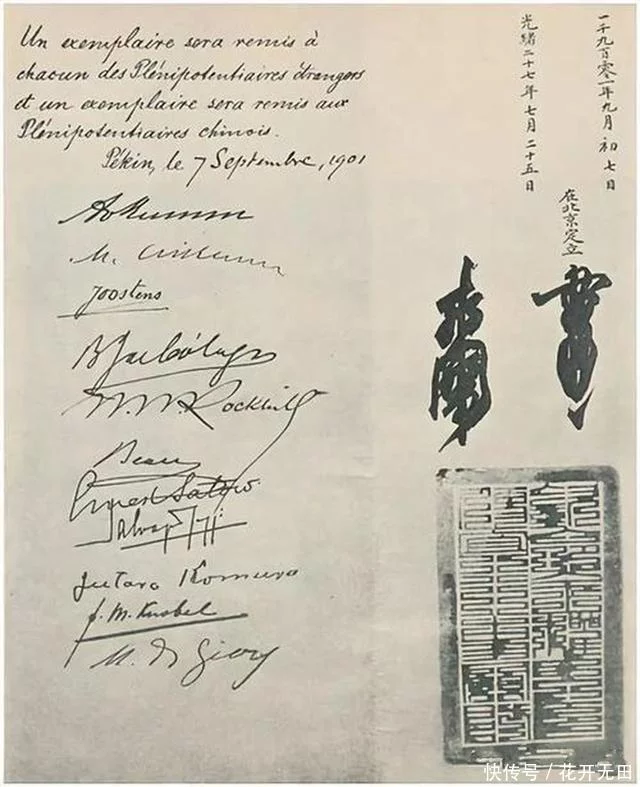 Un exemplaire sera remis à
chacun des Plénipotentiaires étrangers
et un exemplaire sera remis aux
Plénipotentiaires chinois.
Pékin, le 7 Septembre, 1901
Joostens
W. W. Rockhill
Beau
Ernest Satow
Salvago Raggi
Jutaro Komura
F. M. Knobel
M. de Giers
一千九百零一年九月初七日
光緒二十七年七月二十五日
在北京定立
快传号／花开无田